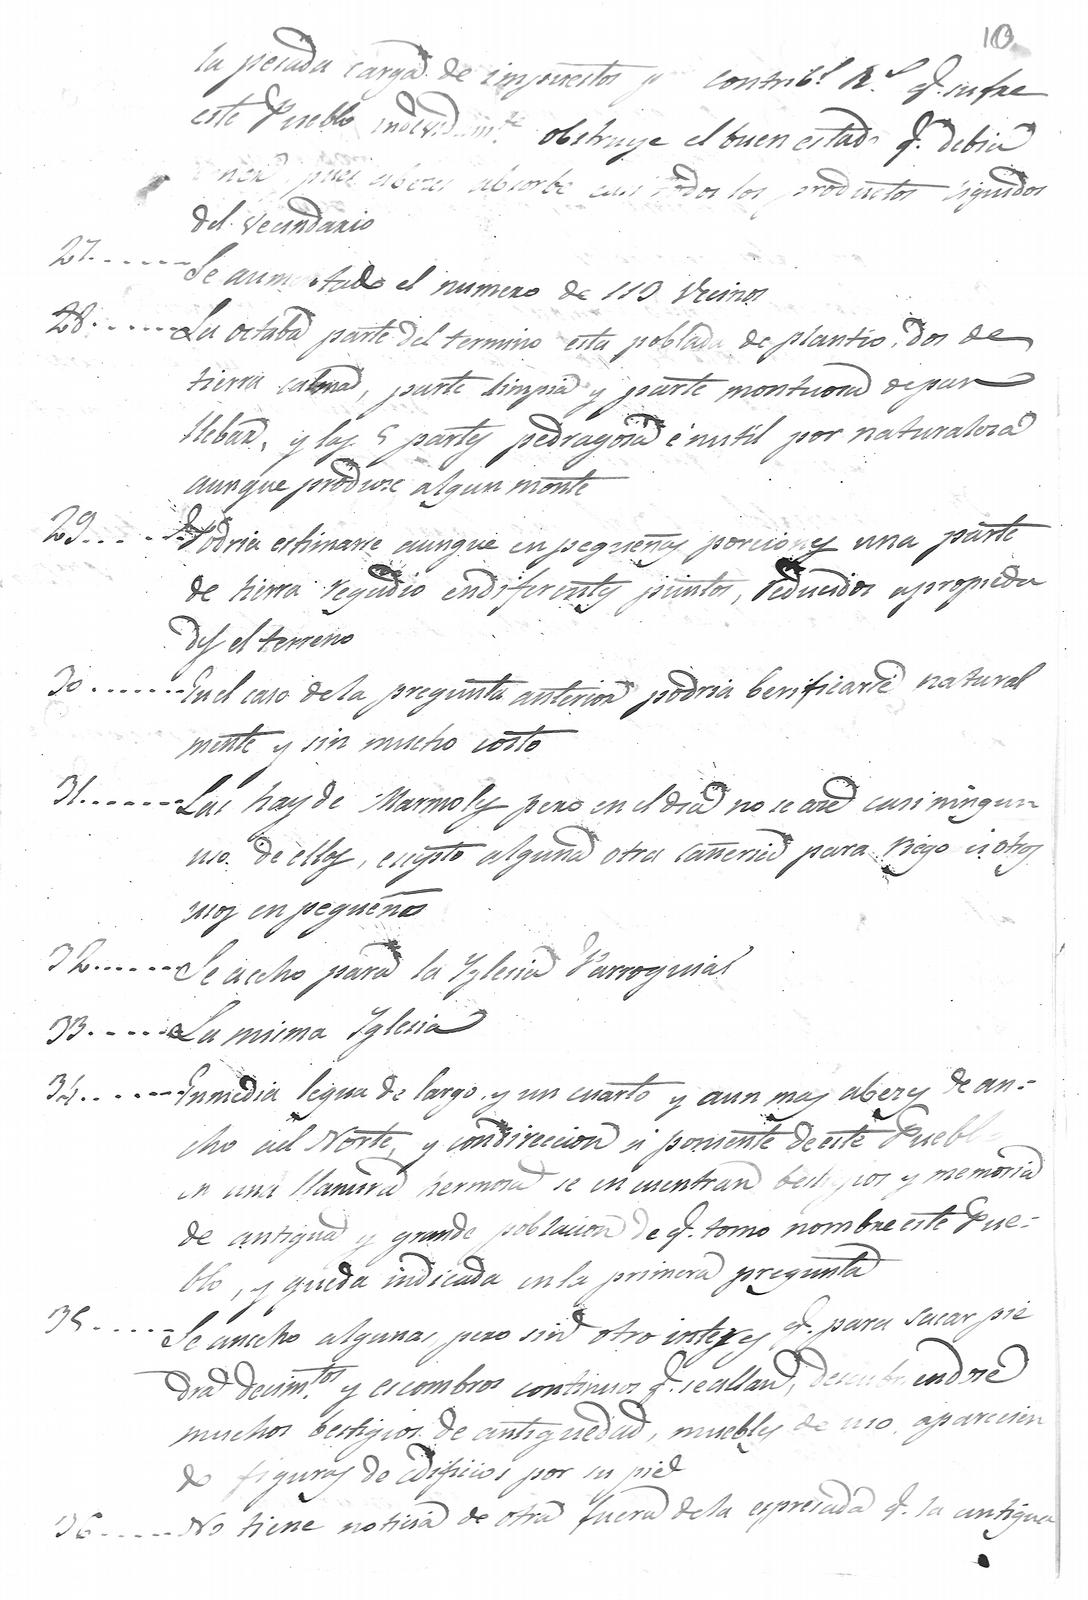 10
la pesada carga de impuestos y contribs. Rs. q. sufre
este Pueblo individualmte. obstruye el buen estado q. debia
tener pues abezes absorbe casi todos los productos liquidos
del vecindario
27...... Se aumentado el numero de 110 Vecinos
28...... La octaba parte del termino esta poblada de plantio, dos de
tierra calma, parte limpia y parte montuosa de pan
llebar, y las 5 partes pedragosa é inutil por naturaleza
aunque produce algun monte
29...... Podria estimarse aunque en pequeñas porciones una parte
de tierra regadio endiferentes puntos, reducidos a propieda
des el terreno
30...... Enel caso dela pregunta anterior podria berificarse natural
mente y sin mucho costo
31...... Las hay de Marmoles pero en el dia no se ace casi ningun
uso de ellos, esepto alguna otra cañeria para riego ú otros
usos en pequeños
32...... Se aecho para la Yglesia Parroquial
33...... La misma Yglesia
34...... Enmedia legua de largo y un cuarto y aun mas abezes de an-
cho al Norte, y condireccion á poniente de este Pueblo
en una llanura hermosa se encuentran bestigios y memoria
de antigua y grande poblacion de q. tomo nombre este Pue-
blo, y queda indicada en la primera pregunta
35...... Se anecho algunas pero sin otro interes q. para sacar pie
dra decimtos. y escombros continuos q. seallan, descubriendose
muchos bestigios de antiguedad, muebles de uso, aparecien
do figuras de edificios por su pie
36...... No tiene noticia de otra fuera dela espresada q. la antigua